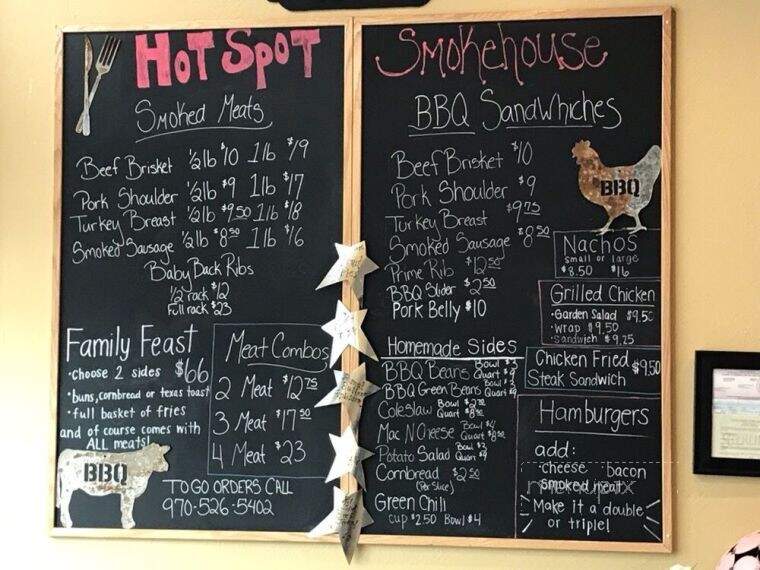 HOT SPOT
Smoked Meats
Beef Brisket ½lb $10 1lb $19
Pork Shoulder ½lb $9 1lb $17
Turkey Breast ½lb $9.50 1lb $18
Smoked Sausage ½lb $8.50 1lb $16
Baby Back Ribs
½ rack $12
Full rack $23
Family Feast
• choose 2 sides $66
• buns, cornbread or texas toast
• full basket of fries
and of course comes with
ALL meats!
BBQ
Meat Combos
2 Meat $12.75
3 Meat $17.50
4 Meat $23
TO GO ORDERS CALL
970-526-5402
Smokehouse
BBQ Sandwhiches
Beef Brisket $10
Pork Shoulder $9
Turkey Breast $9.75
Smoked Sausage $8.50
Prime Rib $12.50
BBQ Slider $2.50
Pork Belly $10
BBQ
Homemade Sides
BBQ Beans Bowl $3 Quart $9
BBQ Green Beans Bowl Quart $9
Coleslaw Bowl Quart
Mac N Cheese Bowl $4 Quart
Potato Salad Bowl Quart
Cornbread $2.50
(Per Slice)
Green Chili
cup $2.50 Bowl $4
Nachos
small or large
$8.50 $16
Grilled Chicken
• Garden Salad $9.50
• Wrap $9.50
• Sandwich $9.25
Chicken Fried $9.50
Steak Sandwich
Hamburgers
add:
• cheese bacon
smoked meat
Make it a double
or triple!